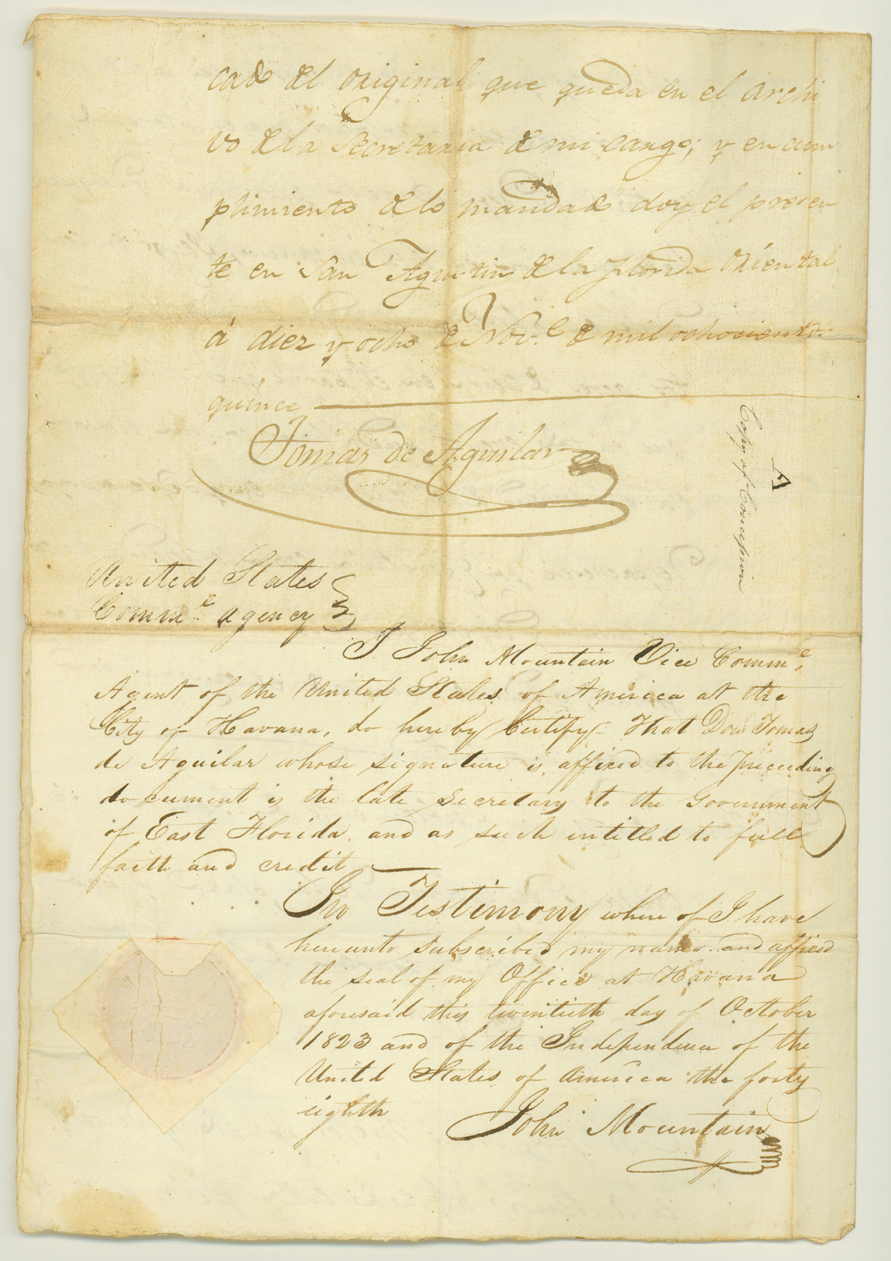 cado del original que queda en el archi
vo de la Secretaria de mi cargo; y en cum
plimiento de lo mandado doy el presen
te en San Agustin de la Florida Oriental
á diez y ocho de Nov.e de mil ochociento.
quince
Tomas de Aguilar
A
Copy of Concession
United States
Comm.e agency
I John Mountain Vice Comm.e
Agent of the United States of America at the
City of Havana, do hereby Certify That Don Tomas
de Aguilar whose signature is affixed to the preceeding
document is the late Secretary to the Government
of East Florida and as such intitled to full
faith and credit
In Testimony where of I have
hereunto subscribed my name and affixed
the seal of my Office at Havana
aforesaid this twentieth day of October
1823 and of the Independence of the
United States of America the forty
eighth
John Mountain